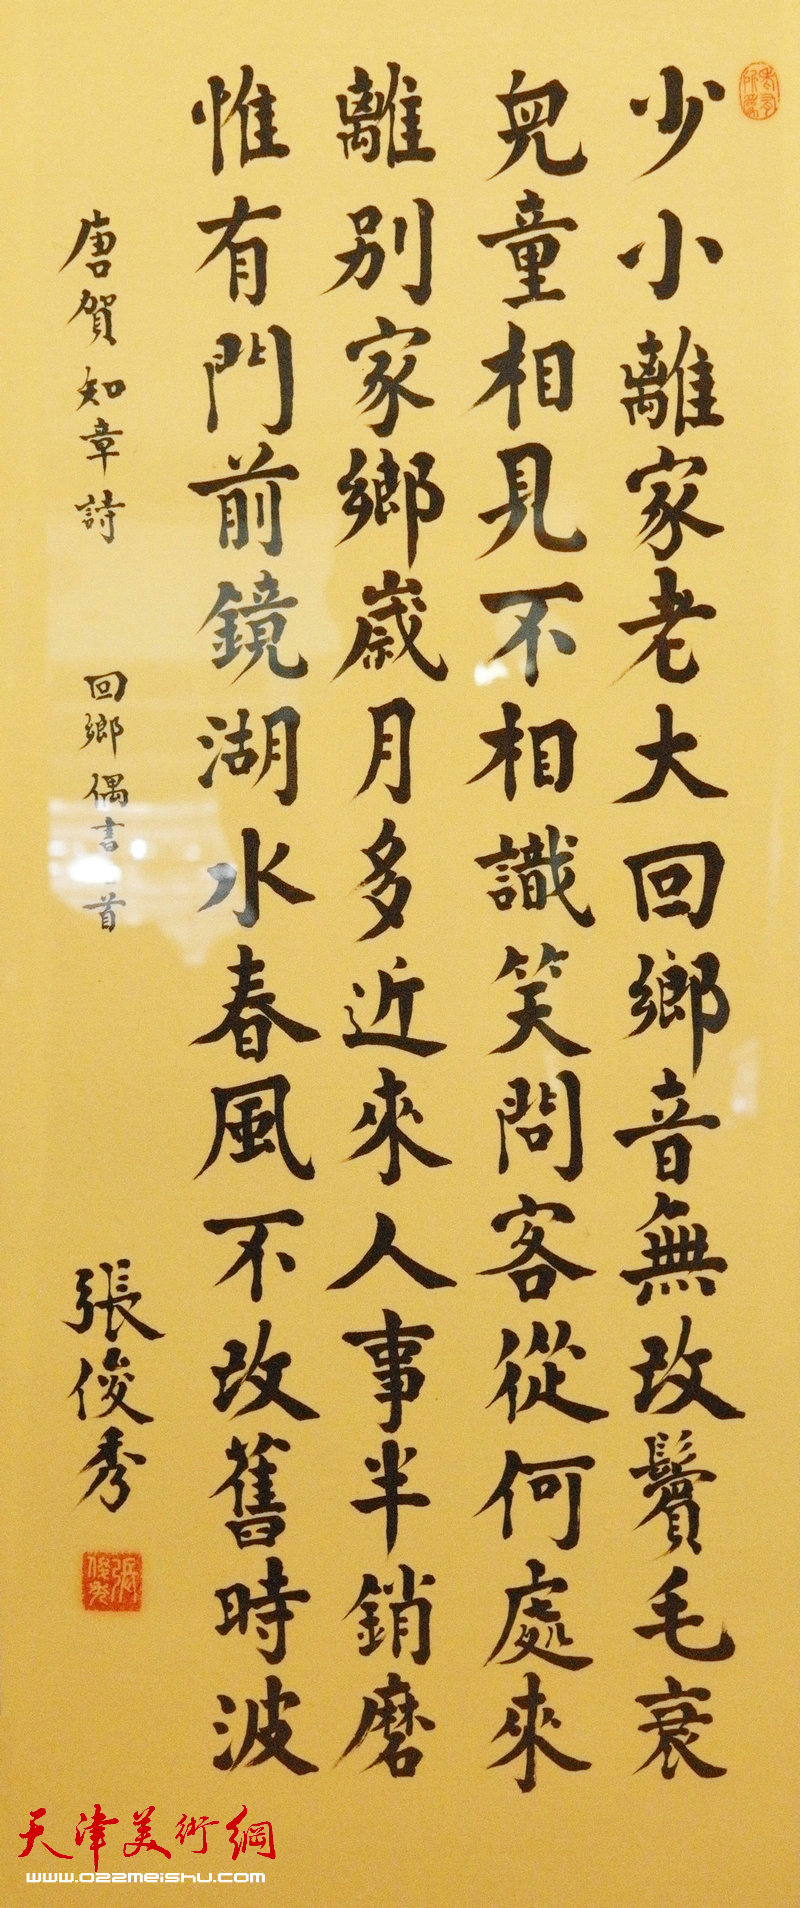 少小離家老大回鄉音無改鬢毛衰
兒童相見不相識笑問客從何處來
離別家鄉歲月多近來人事半銷磨
惟有門前鏡湖水春風不改舊時波
唐賀知章詩 回鄉偶書二首
張俊秀
張俊秀
天津美術網
www.022meishu.com